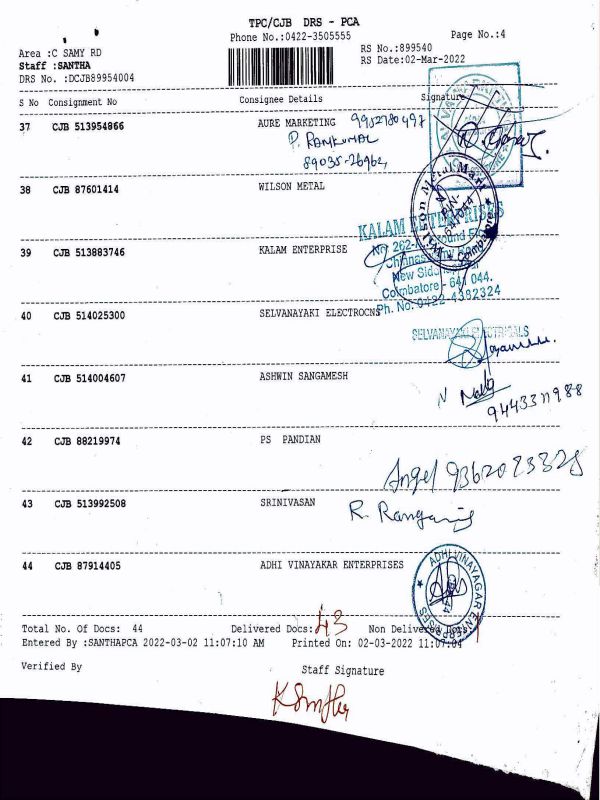 TPC/CJB DRS - PCA
Phone No.:0422-3505555
Page No.:4
Area :C SAMY RD
RS No.:899540
Staff :SANTHA
RS Date:02-Mar-2022
DRS No. :DCJB89954004
S No Consignment No Consignee Details Signature
37 CJB 513954866 AURE MARKETING
P. RAMKUMAR
89035-26962
38 CJB 87601414 WILSON METAL
KALAM ENTERPRISES
39 CJB 513883746 KALAM ENTERPRISE
No. 262-
New Sid
Coimbatore - 641 044.
Ph. No: 0422-4382324
40 CJB 514025300 SELVANAYAKI ELECTROCNS
SELVANAYAKI ELECTRICALS
41 CJB 514004607 ASHWIN SANGAMESH
9443311988
42 CJB 88219974 PS PANDIAN
Angel 9362023328
43 CJB 513992508 SRINIVASAN
R.
44 CJB 87914405 ADHI VINAYAKAR ENTERPRISES
ADHI VINAYAGAR ENTERPRISES
Total No. Of Docs: 44 Delivered Docs: 43 Non Delivered Docs:
Entered By :SANTHAPCA 2022-03-02 11:07:10 AM Printed On: 02-03-2022 11:07:04
Verified By Staff Signature